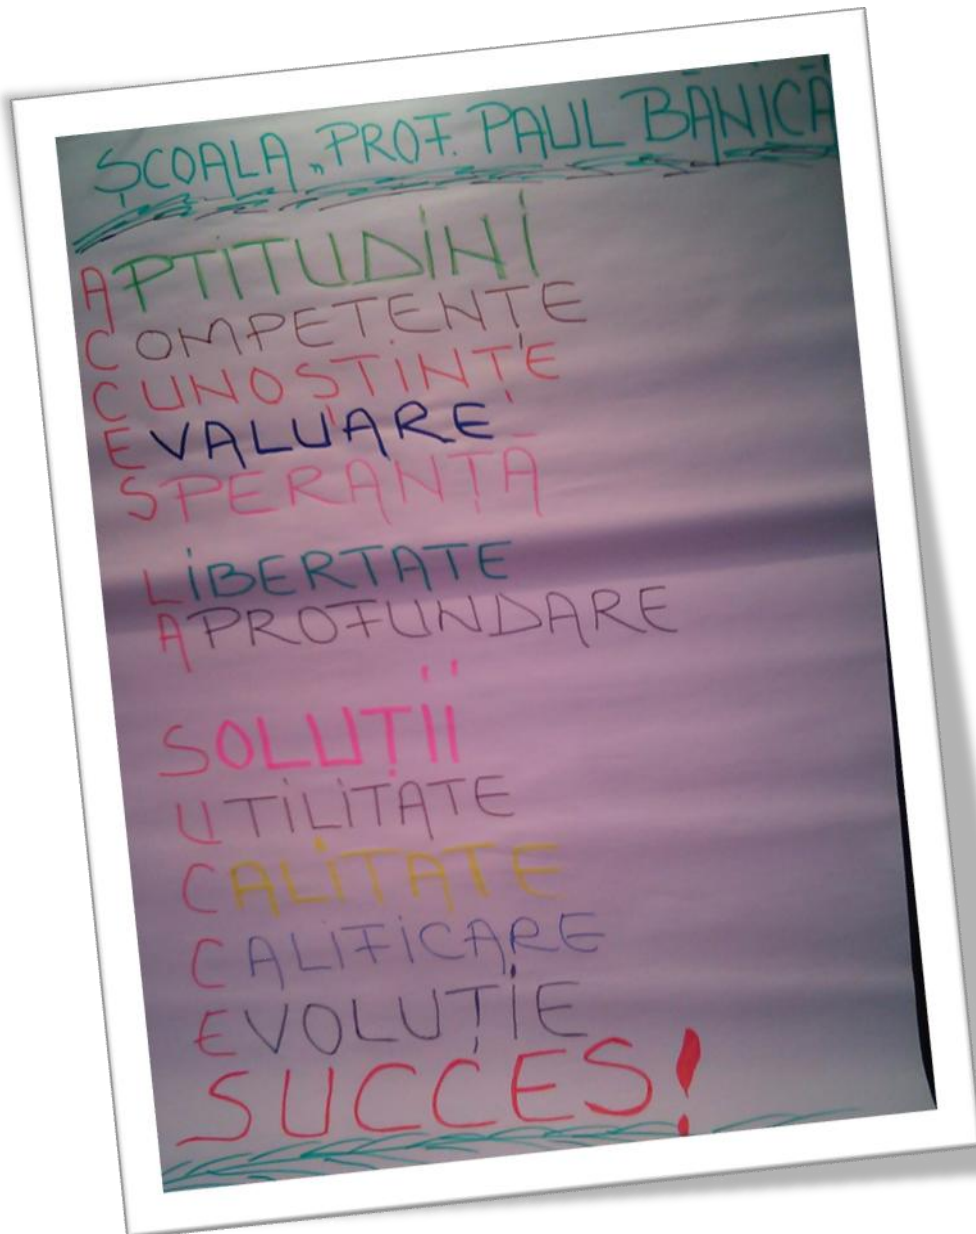 ȘCOALA „PROF. PAUL BĂNICĂ
APTITUDINI
COMPETENȚE
CUNOȘTINȚE
EVALUARE
SPERANȚĂ
LIBERTATE
APROFUNDARE
SOLUȚII
UTILITATE
CALITATE
CALIFICARE
EVOLUȚIE
SUCCES!